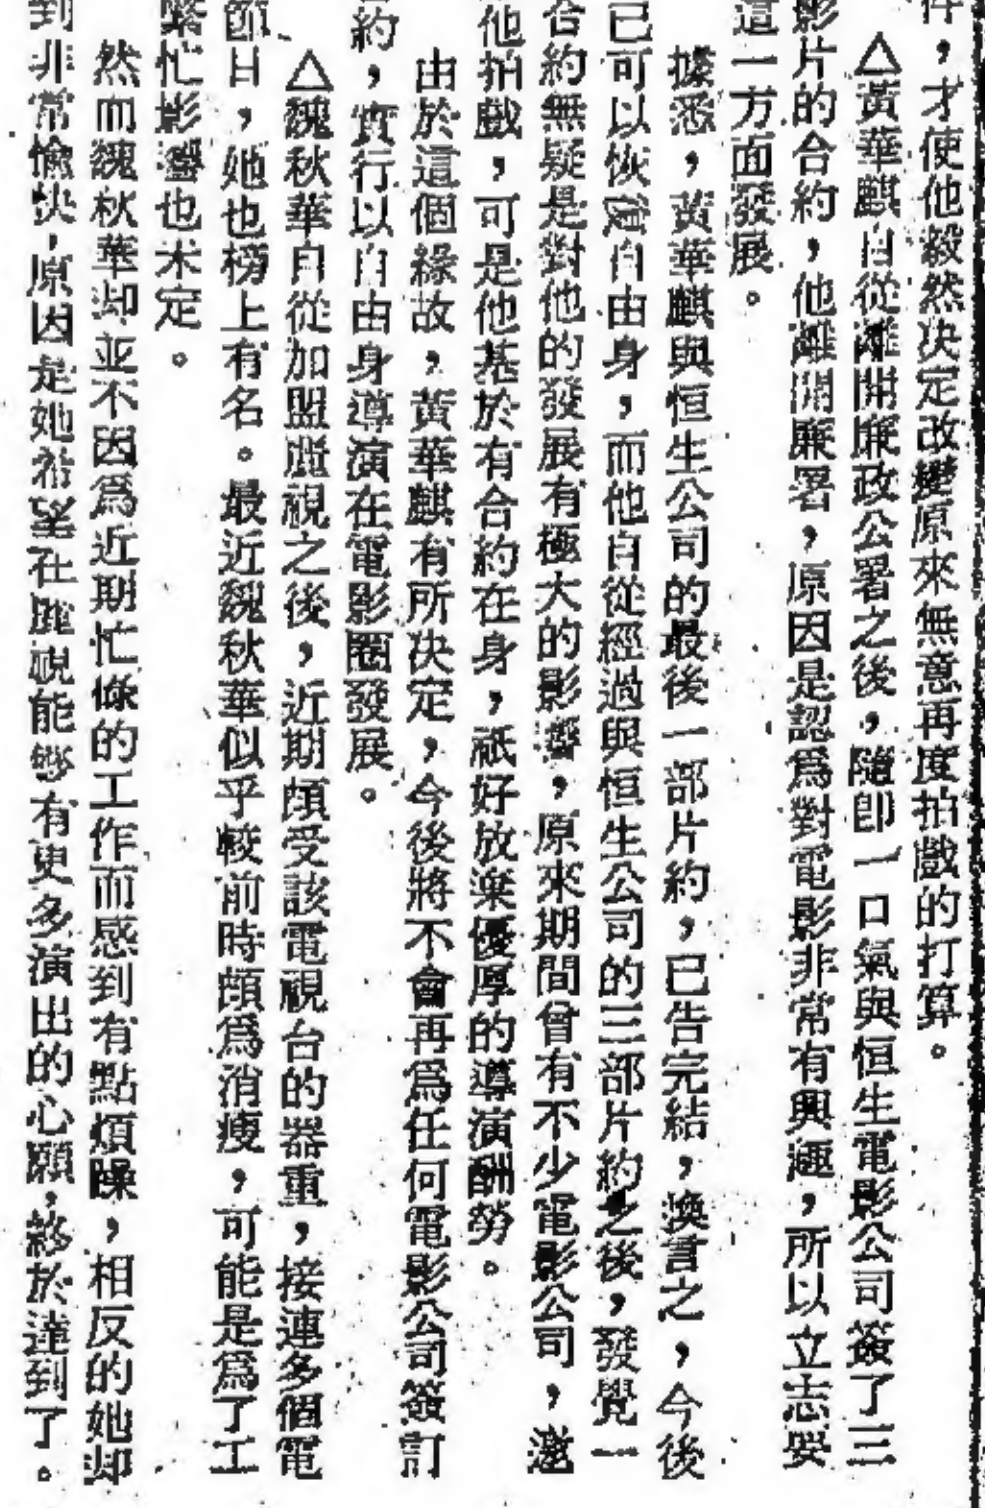 件，才使他毅然决定改變原來無意再度拍戲的打算。
△黃華麒自從離開廉政公署之後，隨即一口氣與恒生電影公司簽了三
影片的合約，他離開廉署，原因是認爲對電影非常有興趣，所以立志要
這一方面發展。
據悉，黃華麒與恒生公司的最後一部片約，已告完結，換言之，今後
已可以恢復自由身，而他自從經過與恒生公司的三部片約之後，發覺一
合約無疑是對他的發展有極大的影響，原來期間曾有不少電影公司，邀
他拍戲，可是他基於有合約在身，祇好放棄優厚的導演酬勞。
由於這個緣故，黃華麒有所决定，今後將不會再爲任何電影公司簽訂
約，實行以自由身導演在電影圈發展。
△魏秋華自從加盟麗視之後，近期頗受該電視台的器重，接連多個電
節目，她也榜上有名。最近魏秋華似乎較前時頗爲消瘦，可能是爲了工
繁忙影響也未定。
然而魏秋華却並不因爲近期忙條的工作而感到有點煩躁，相反的她却
到非常愉快，原因是她希望在麗視能够有更多演出的心願，終於達到了。